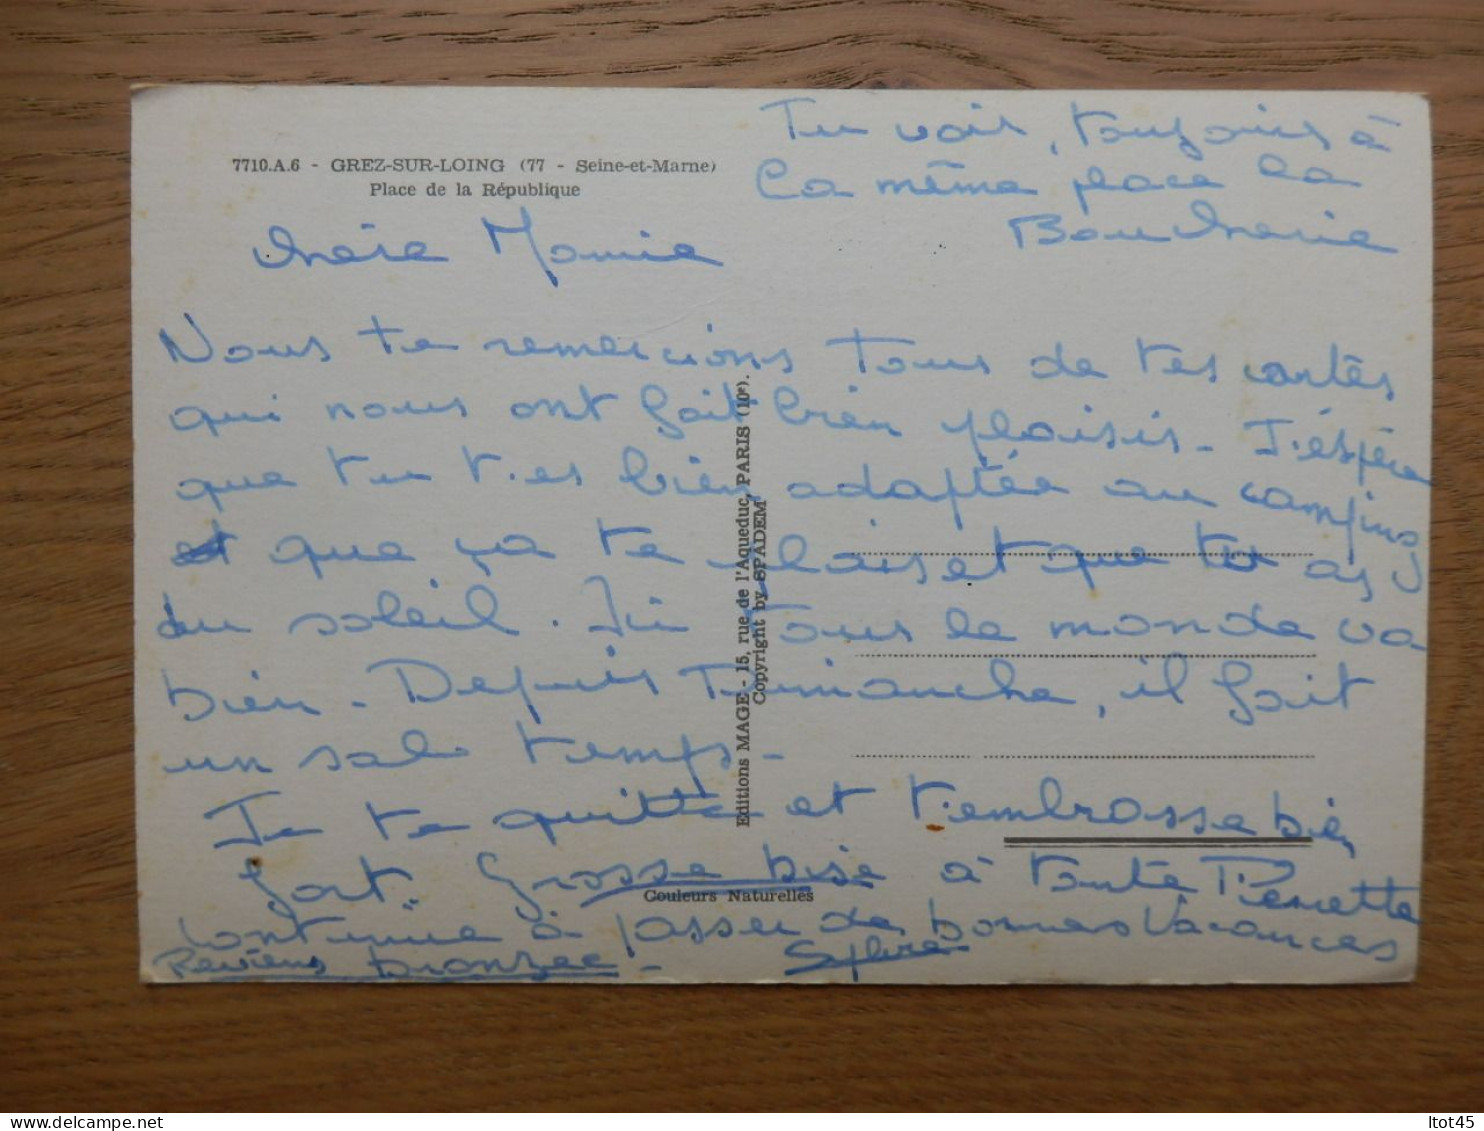 Tu vois, toujours à
la même place la
Boucherie
7710.A.6 - GREZ-SUR-LOING (77 - Seine-et-Marne)
Place de la République
Chère Mamie
Nous te remercions tous de tes cartes
qui nous ont fait bien plaisir - J'espère
que tu t'es bien adaptée au camping
et que ça te plais et que tu as
du soleil. Ici tous le monde va
bien - Depuis Dimanche, il fait
un sale temps -
Je te quitte et t'embrasse bien
fort. Grosse bise à tante Pierrette
continue à passer de bonnes vacances
Reviens bronzée ! - Sylvie
Editions MAGE - 15, rue de l'Aqueduc, PARIS (10e).
Copyright by SPADEM
Couleurs Naturelles
ltot45